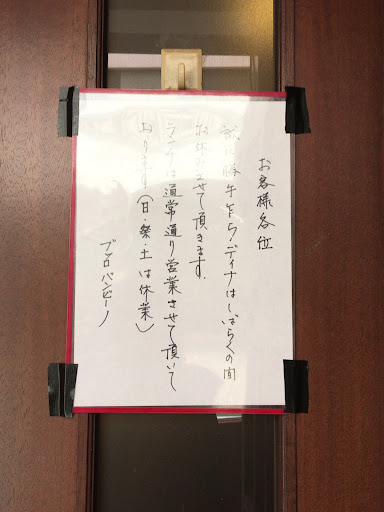 お客様各位
誠に勝手乍らディナーはしばらくの間
お休みさせて頂きます。
ランチは通常通り営業させて頂いて
おります（日・祭・土は休業）
ブロバンビーノ